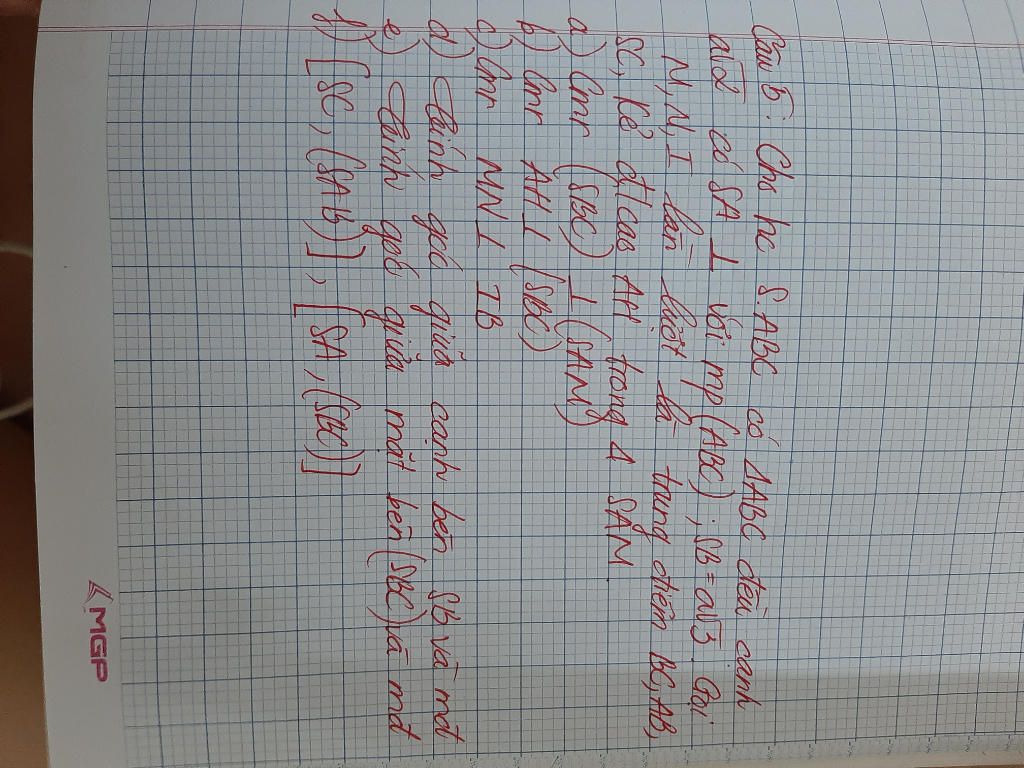 Câu 5: Cho hc S.ABC có ΔABC đều cạnh
a√2 có SA ⊥ với mp (ABC); SB = a√3. Gọi
M, N, I lần lượt là trung điểm BC, AB,
SC, kẻ đ/cao AH trong Δ SAM
a) Cmr (SBC) ⊥ (SAM)
b) Cmr AH ⊥ (SBC)
c) Cmr MN ⊥ IB
d) Tính góc giữa cạnh bên SB và mặt
e) Tính góc giữa mặt bên (SBC) và mđ
f) [SC, (SAB)], [SA, (SBC)]
MGP